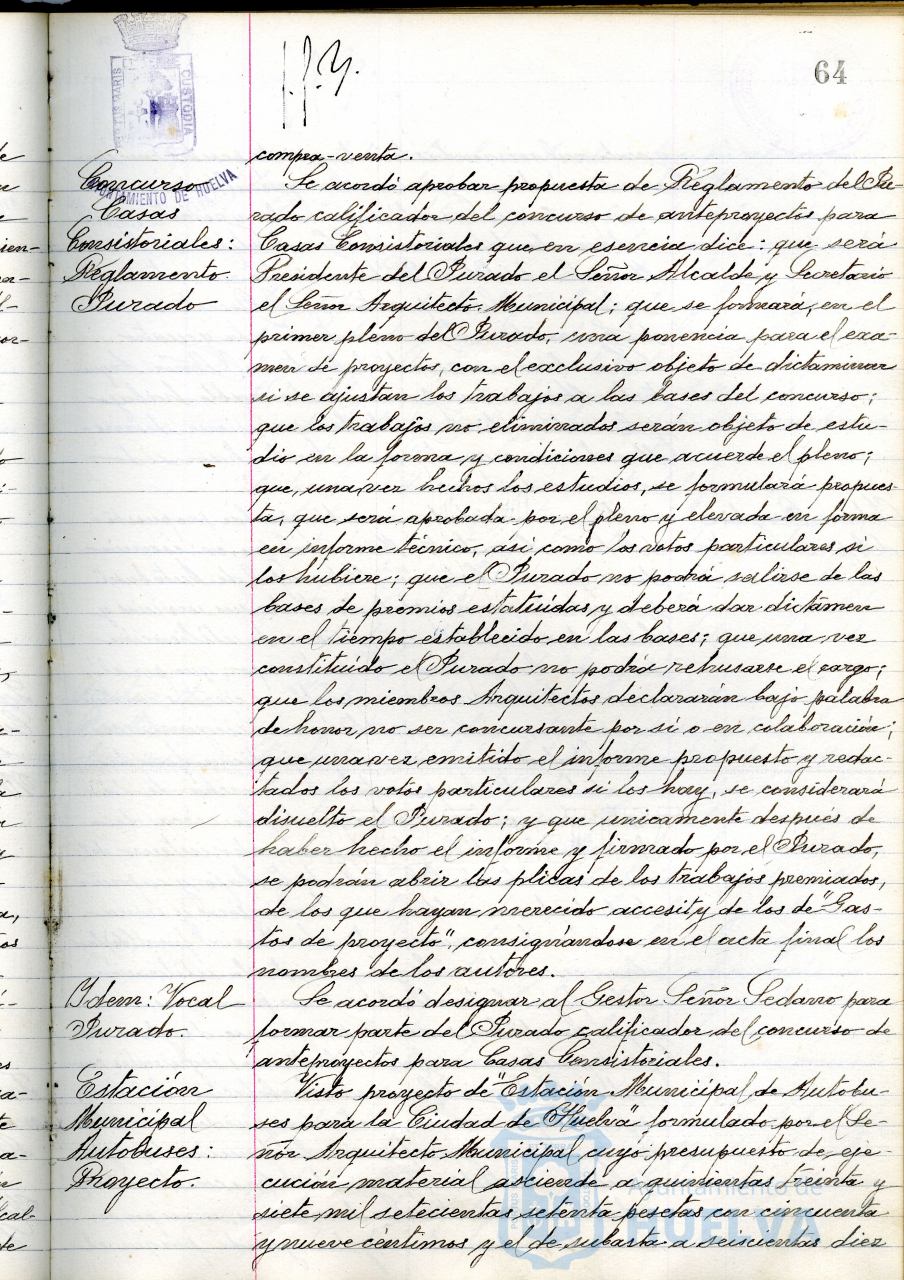 64
compra-venta.
Concurso
Casas
Consistoriales:
Reglamento
Jurado
AYUNTAMIENTO DE HUELVA
CUSTODIA
Se acordó aprobar propuesta de Reglamento del Ju-
rado calificador del concurso de anteproyectos para
Casas Consistoriales que en esencia dice: que será
Presidente del Jurado el Señor Alcalde y Secretario
el Señor Arquitecto Municipal; que se formará, en el
primer pleno del Jurado, una ponencia para el exa-
men de proyectos, con el exclusivo objeto de dictaminar
si se ajustan los trabajos a las bases del concurso;
que los trabajos no eliminados serán objeto de estu-
dio en la forma y condiciones que acuerde el pleno;
que, una vez hechos los estudios, se formulará propues-
ta, que será aprobada por el pleno y elevada en forma
en informe técnico, así como los votos particulares, si
los hubiere; que el Jurado no podrá salirse de las
bases de premios estatuídas y deberá dar dictámen
en el tiempo establecido en las bases; que una vez
constituído el Jurado no podrá rehusarse el cargo;
que los miembros Arquitectos declararán bajo palabra
de honor no ser concursante por sí o en colaboración;
que una vez emitido el informe propuesto y redac-
tados los votos particulares si los hay, se considerará
disuelto el Jurado; y que unicamente después de
haber hecho el informe y firmado por el Jurado,
se podrán abrir las plicas de los trabajos premiados,
de los que hayan merecido accesit y de los de "Gas-
tos de proyecto", consignándose en el acta final los
nombres de los autores.
Idem: Vocal
Jurado.
Se acordó designar al Gestor Señor Sedano para
formar parte del Jurado calificador del concurso de
anteproyectos para Casas Consistoriales.
Estación
Municipal
Autobuses:
Proyecto.
Visto proyecto de "Estación Municipal de Autobu-
ses para la Ciudad de Huelva" formulado por el Se-
ñor Arquitecto Municipal cuyo presupuesto de eje-
cución material asciende a quinientas treinta y
siete mil setecientas setenta pesetas con cincuenta
y nueve céntimos y el de subasta a seiscientas diez
Ayuntamiento de
HUELVA